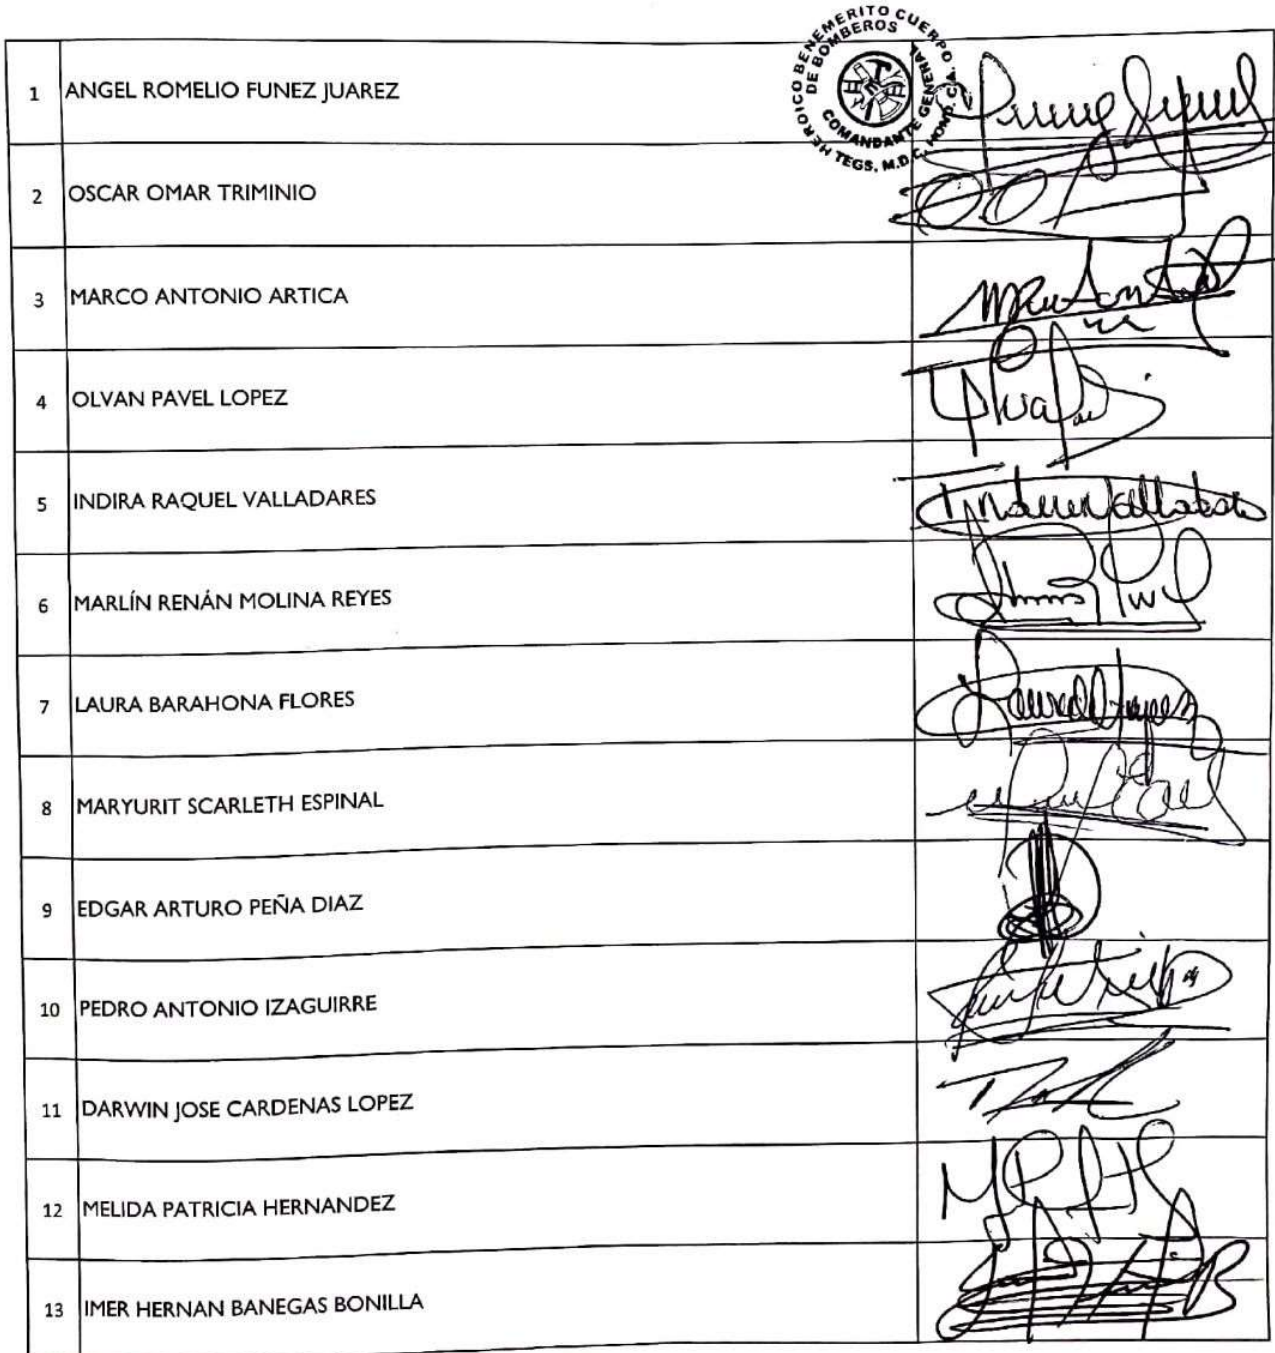 HEROICO BENEMERITO CUERPO
DE BOMBEROS
COMANDANTE GENERAL
TEGS. M.D.C. HOND. C.A.
1 ANGEL ROMELIO FUNEZ JUAREZ
2 OSCAR OMAR TRIMINIO
3 MARCO ANTONIO ARTICA
4 OLVAN PAVEL LOPEZ
5 INDIRA RAQUEL VALLADARES
6 MARLÍN RENÁN MOLINA REYES
7 LAURA BARAHONA FLORES
8 MARYURIT SCARLETH ESPINAL
9 EDGAR ARTURO PEÑA DIAZ
10 PEDRO ANTONIO IZAGUIRRE
11 DARWIN JOSE CARDENAS LOPEZ
12 MELIDA PATRICIA HERNANDEZ
13 IMER HERNAN BANEGAS BONILLA